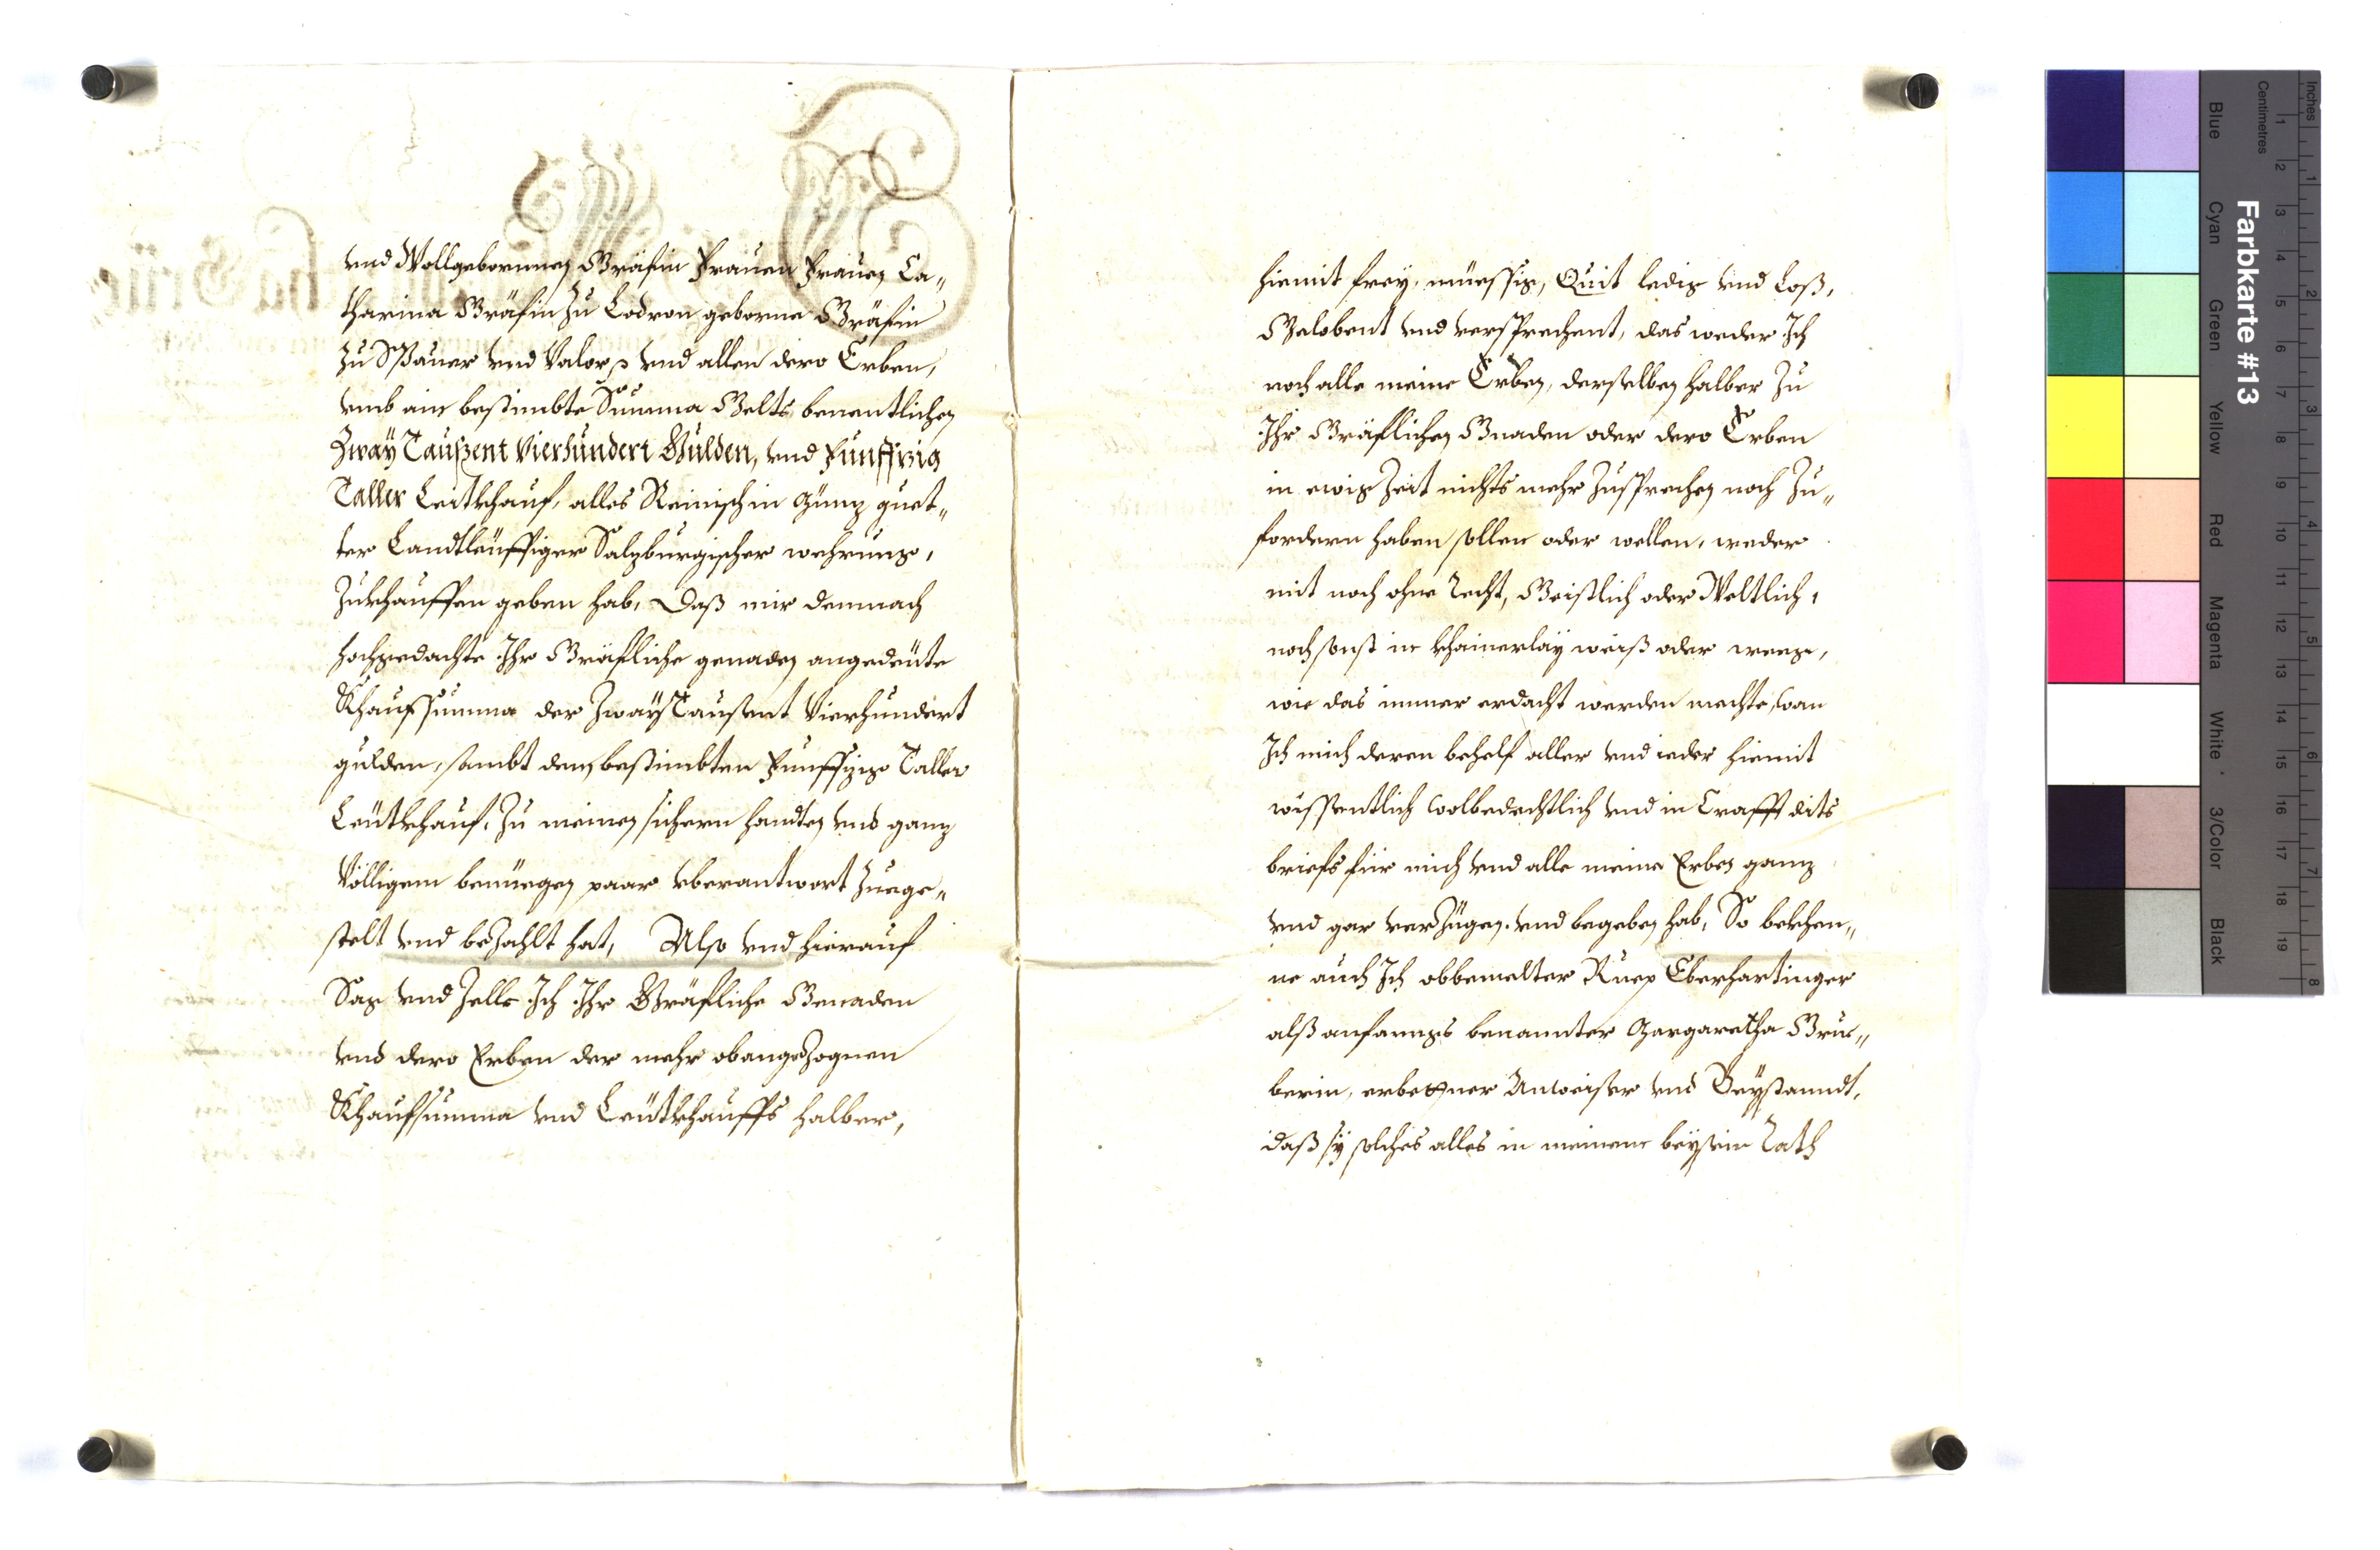 vnd Wollgebornnen Gräfin Frauen Frauen Ca„
tharina Gräfin zu Lodron geborne Gräfin
zu Spauer vnd Valor, vnd allen dero Erben,
vmb ain bestimbte Summa Gelts benentlichen
Zway Taußent Vierhundert Gulden, vnd Funffzig
Taller Leitkhauf, alles Reinisch in Münz guet„
ter Landtleüffiger Salzburgischer wehrung,
Zukhauffen geben hab, Daß mir demnach
hochgedachte Ihr Gräfliche genaden angedeüte
Khaufsumma der Zway Taußent Vierhundert
gulden, sambt den bestimbten Funffzig Taller
Leütkhauf, Zu meinen sichern handten vnd ganz
Völligem benüegen paar vberantwort Zuege„
stelt vnd bezahlt hat, Also vnd hierauf
Sag vnd Zelle Ich Ihr Gräfliche Genaden
vnd dero Erben der mehr obangezognen
Khaufsumma vnd Leütkhauffs halber,
hiemit frey, müessig, Quit ledig vnd Loß,
Gelobent vnd versprechent, das weder Ich
noch alle meine Erben, derselben halber Zu
Ihr Gräflichen Gnaden oder dero Erben
in ewig Zeit nichts mehr Zusprechen noch Zu„
fordern haben sollen oder wellen, weder
mit noch ohne Recht, Geistlich oder Weltlich,
noch sonst in khainerlay weiß oder weege,
wie das immer erdacht werden mechte, wan
Ich mich deren behelf aller vnd ieder hiemit
wissentlich wolbedechtlich vnd in Crafft dits
briefs für mich vnd alle meine Erben ganz
vnd gar verzügen vnd begeben hab, So bekhen„
ne auch Ich obbemelter Ruep Eberhartinger
alß anfanngs benannter Margaretha Grue„
berin, erbettner Anweiser vnd Beystanndt,
daß sy solches alles in meinem beysein Rath